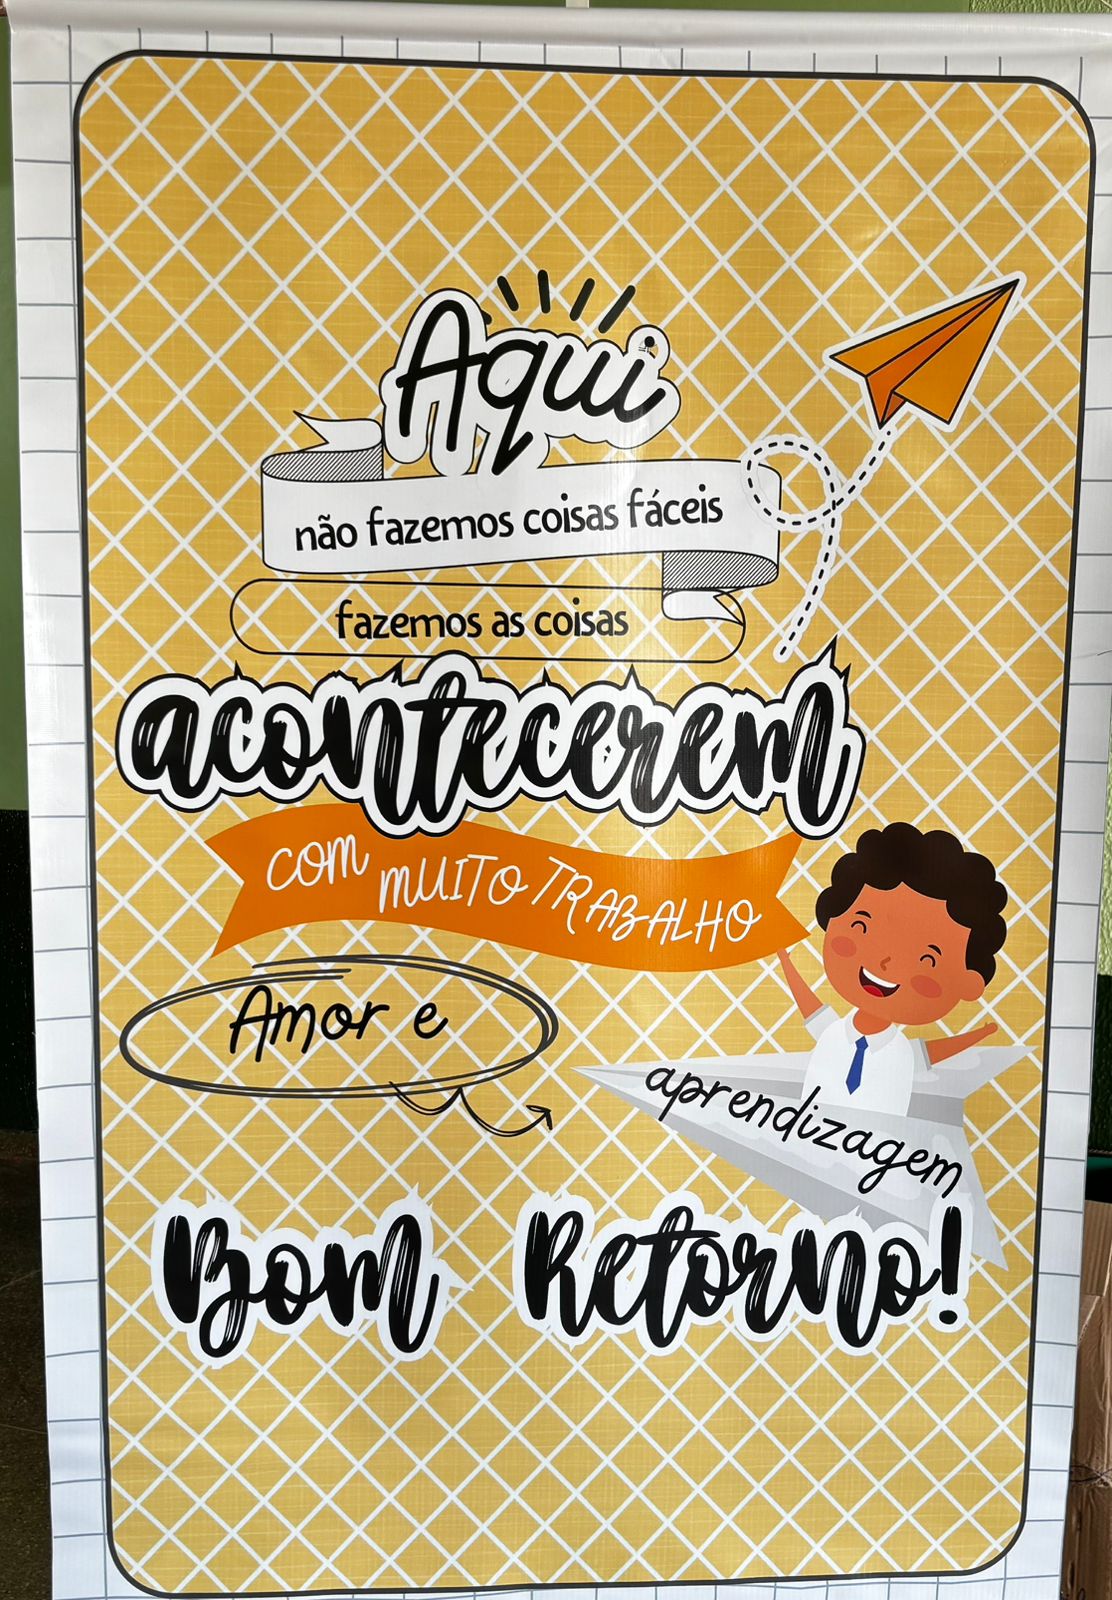 Aqui
não fazemos coisas fáceis
fazemos as coisas
acontecerem
com MUITO TRABALHO
Amor e
aprendizagem
Bom Retorno!